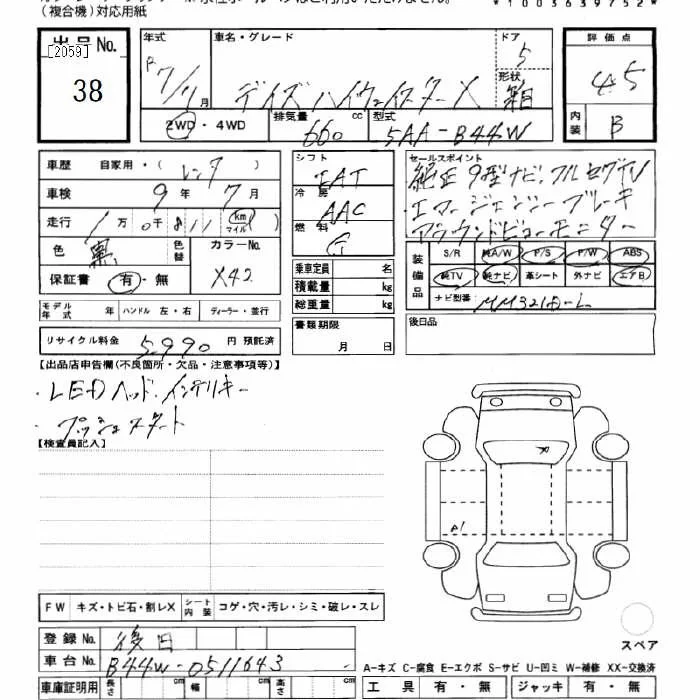 (複合機)対応用紙
*1003639752*
出品No.
[2059]
38
年式
R7/1月
車名・グレード
デイズ ハイウェイスターX
ドア
5
形状
箱
評価点
4.5
2WD・4WD
排気量
660 cc
型式
5AA-B44W
内装
B
車歴 自家用・(レンタ)
車検 9年7月
走行 1万0千811 km マイル
色 黒
色替
カラーNo.
X42
保証書 有・無
モデル年式 年 ハンドル 左・右 ディーラー・並行
リサイクル料金 5,990 円 預託済
シフト
FAT
冷房
AAC
燃料
G
乗車定員 名
積載量 kg
総重量 kg
書類期限
月 日
セールスポイント
純正9型ナビ、フルセグTV
エマージェンシーブレーキ
アラウンドビューモニター
装備品
S/R 純A/W P/S P/W ABS
純TV 純ナビ 革シート 外ナビ エアB
ナビ型番 MM321D-L
後日品
【出品店申告欄(不良箇所・欠品・注意事項等)】
・LEDヘッド、インテリキー
・プッシュスタート
【検査員記入】
A1
FW キズ・トビ石・割レX シート内装 コゲ・穴・汚レ・シミ・破レ・スレ
登録No. 後日
車台No. B44W-0511643
車庫証明用 長さ cm 幅 cm 高さ cm
スペア
A-キズ C-腐食 E-エクボ S-サビ U-凹ミ W-補修 XX-交換済
工具 有・無 ジャッキ 有・無